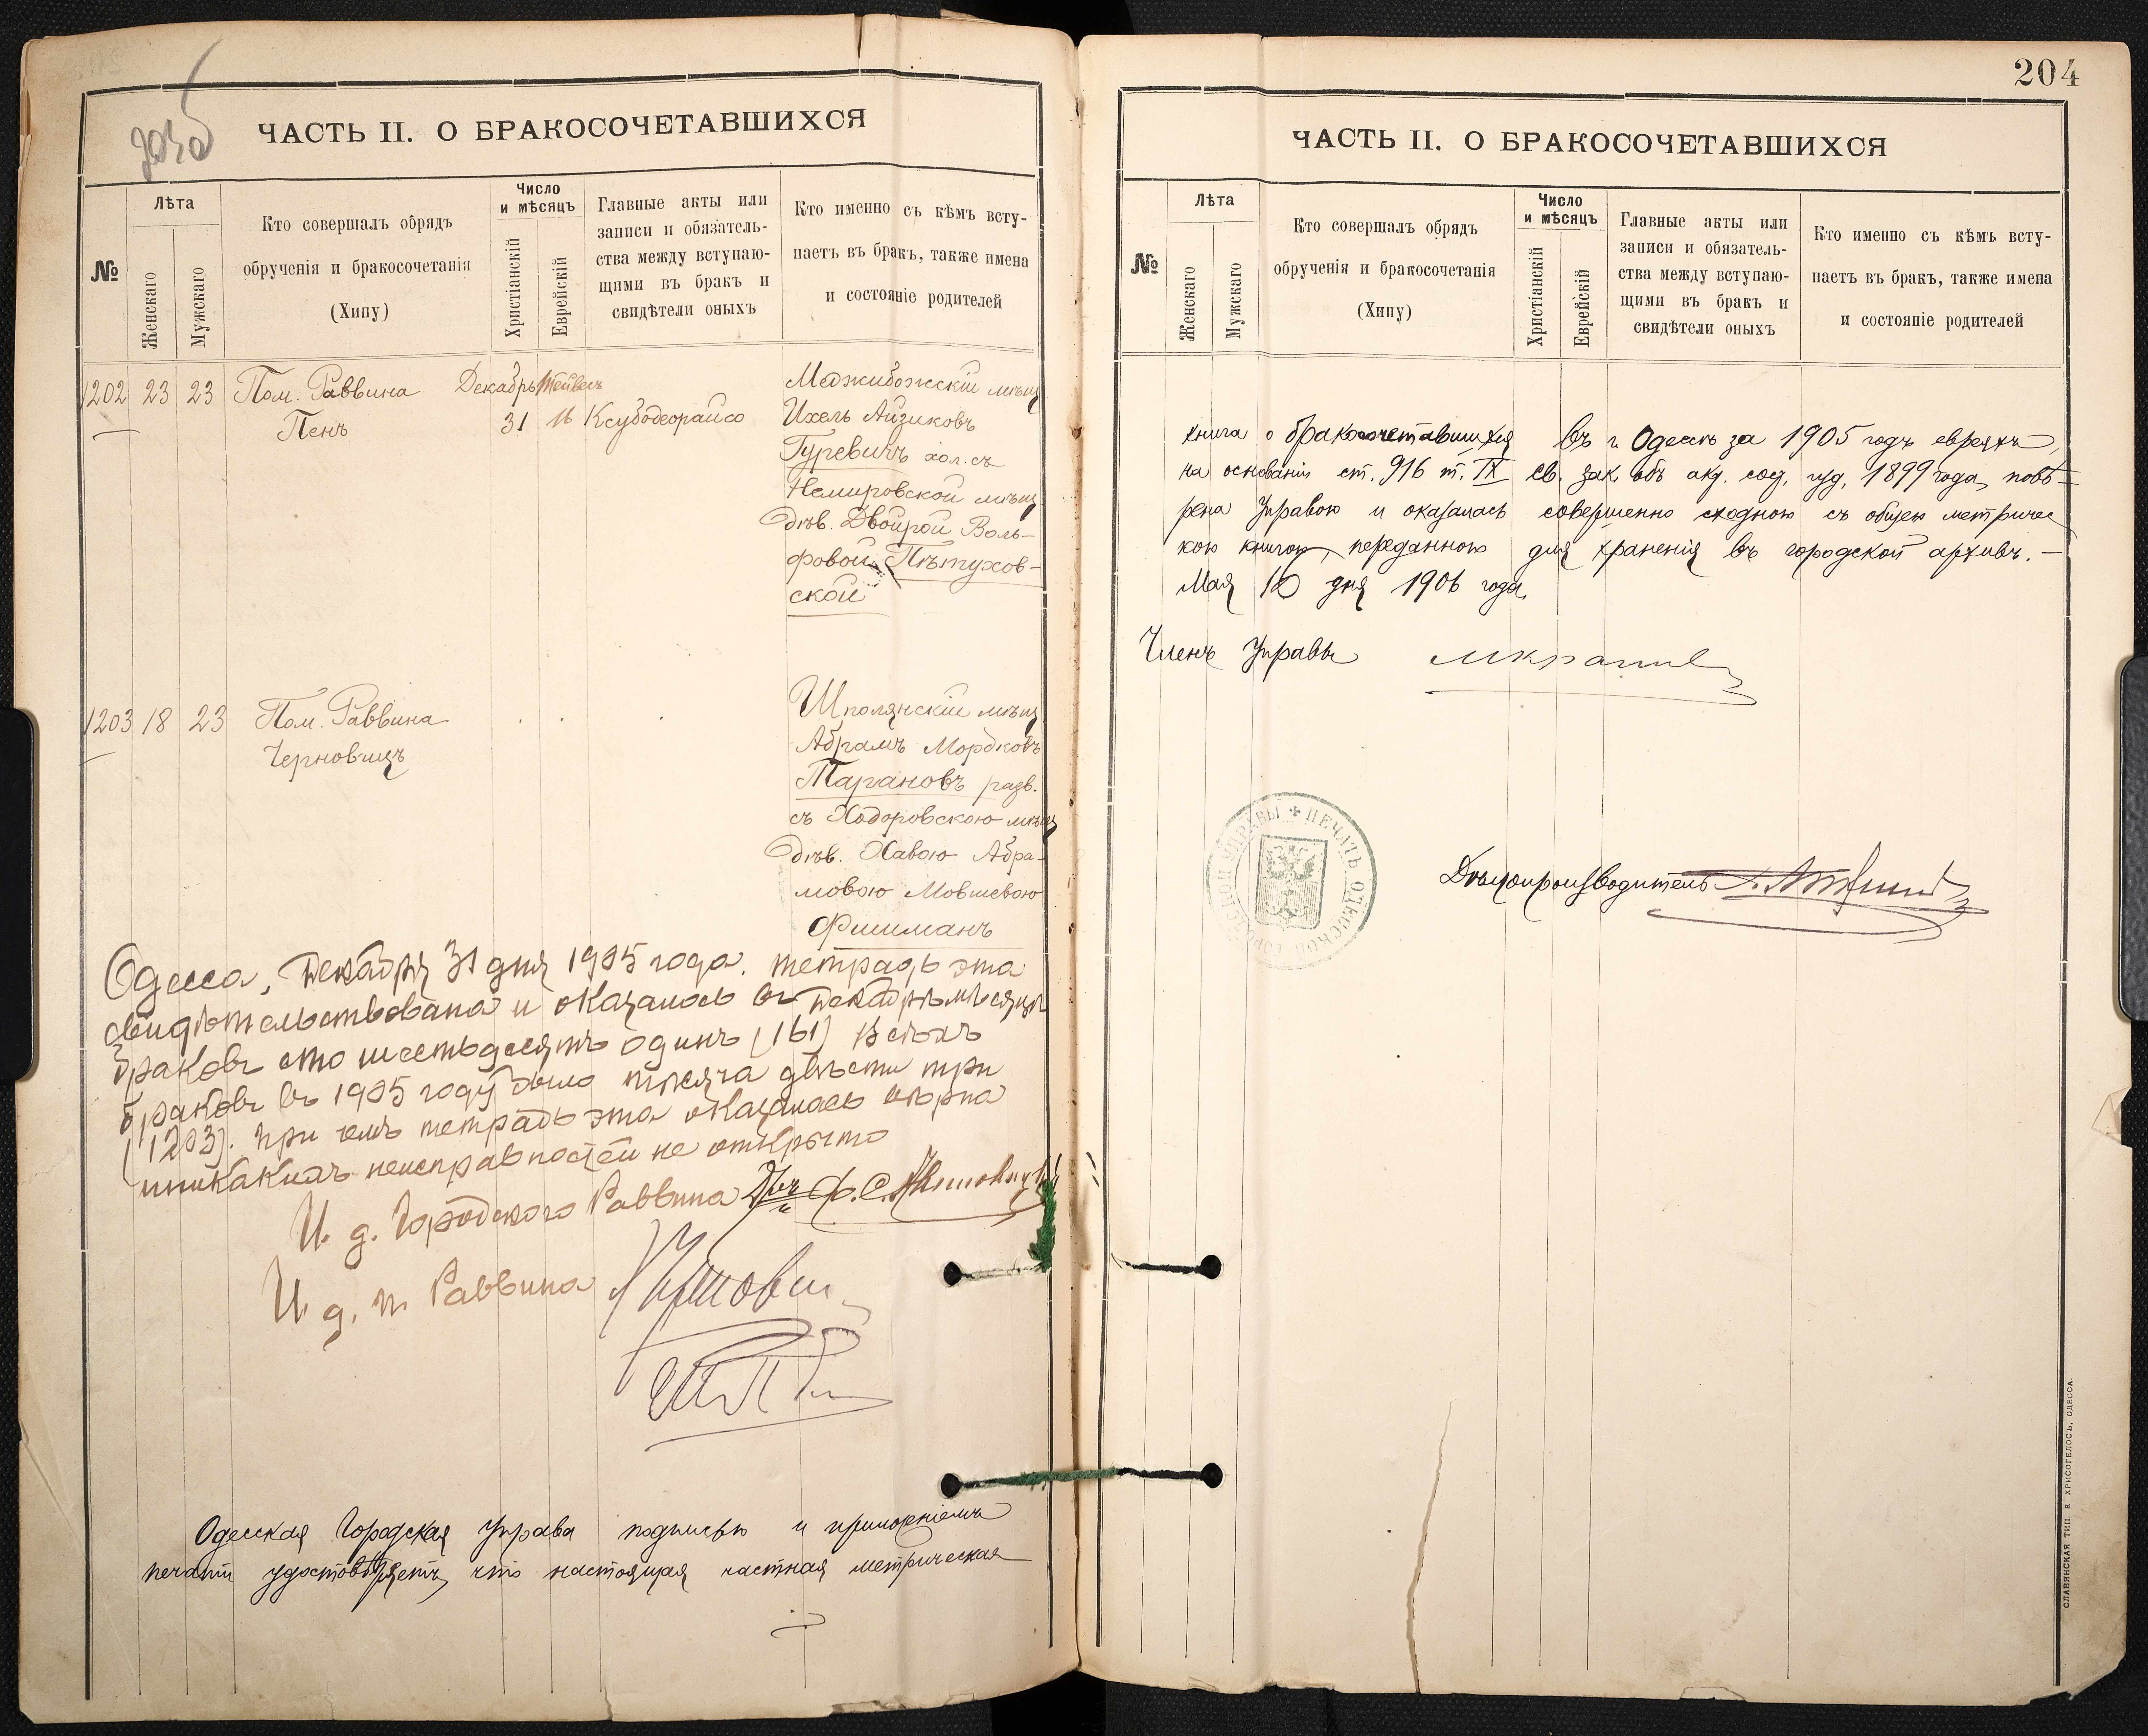 ЧАСТЬ II. О БРАКОСОЧЕТАВШИХСЯ
№
Лѣта
Женскаго
Мужскаго
Кто совершалъ обрядъ
обрученія и бракосочетанія
(Хипу)
Число
и мѣсяцъ
Христіанскій
Еврейскій
Главные акты или
записи и обязатель-
ства между вступаю-
щими въ бракъ и
свидѣтели оныхъ
Кто именно съ кѣмъ всту-
паетъ въ бракъ, также имена
и состояніе родителей
1202 23 23 Пом. Раввина Декабрь Тейвесъ Меджибожскій мѣщ
Пенъ 31 16 Ксубодеорайсо Ихель Айзиковъ
Гуревичъ хол. съ
Немировской мѣщ
дѣв. Двойрой Воль-
фовой Пѣтухов-
ской
1203 18 23 Пом. Раввина Шполянскій мѣщ
Черновицъ Абрамъ Мордковъ
Тарановъ разв.
съ Ходоровскою мѣщ
дѣв. Хавою Абра-
мовою Мовшевою
Фишманъ
Одесса, Декабря 31 дня 1905 года. тетрадь эта
свидѣтельствована и оказалось въ Декабрѣ мѣсяцѣ
браковъ сто шестьдесятъ одинъ (161) Всѣхъ
браковъ въ 1905 году было тысяча двѣсти три
(1203). При чемъ тетрадь эта оказалась вѣрна
никакихъ неисправностей не открыто
И. д. Городского Раввина
И. д. п. Раввина
Одесская Городская Управа подписью и приложеніемъ
печати удостовѣряетъ, что настоящая частная метрическая
204
ЧАСТЬ II. О БРАКОСОЧЕТАВШИХСЯ
№
Лѣта
Женскаго
Мужскаго
Кто совершалъ обрядъ
обрученія и бракосочетанія
(Хипу)
Число
и мѣсяцъ
Христіанскій
Еврейскій
Главные акты или
записи и обязатель-
ства между вступаю-
щими въ бракъ и
свидѣтели оныхъ
Кто именно съ кѣмъ всту-
паетъ въ бракъ, также имена
и состояніе родителей
книга о бракосочетавшихся въ г. Одессѣ за 1905 годъ евреяхъ,
на основаніи ст. 916 т. IX св. зак. объ акт. сост. изд. 1899 года, повѣ-
рена Управою и оказалась совершенно сходною съ общею метричес
кою книгою, переданною для храненія въ городской архивъ. —
Мая 10 дня 1906 года.
Членъ Управы
ПЕЧАТЬ ОДЕССКОЙ ГОРОДСКОЙ УПРАВЫ
Дѣлопроизводитель
СЛАВЯНСКАЯ ТИП. В ХРИСОГЕЛОСЪ, ОДЕССА.